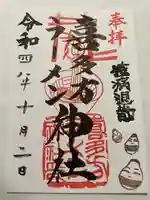 奉拝
疫病退散
喜多方
ラーメン神社
令和四年十月二日